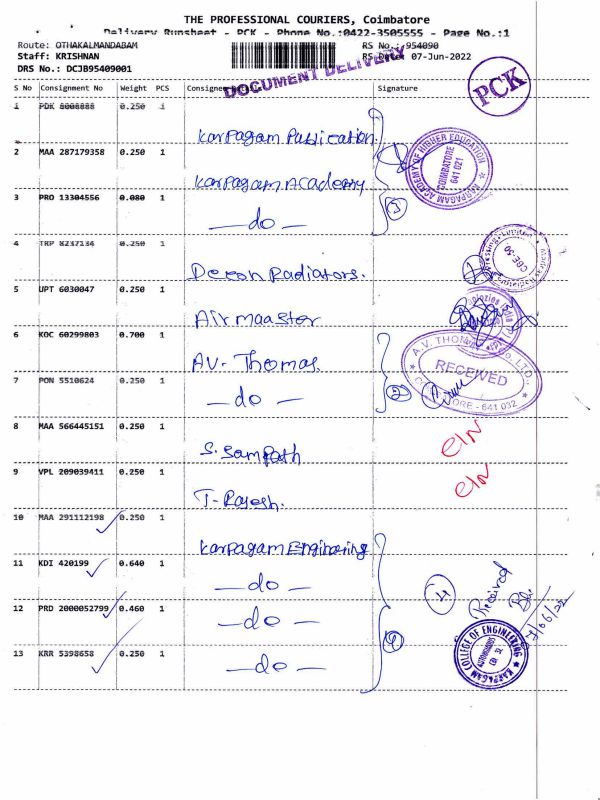 THE PROFESSIONAL COURIERS, Coimbatore
Delivery Runsheet - PCK - Phone No.:0422-3505555 - Page No.:1
Route: OTHAKALMANDABAM
RS No.: 954090
Staff: KRISHNAN
RS Date: 07-Jun-2022
DRS No.: DCJB95409001
DOCUMENT DELIVERY
PCK
S No Consignment No Weight PCS Consignee Details Signature
1 PDK 8008888 0.250 1
Karpagam Publication.
2 MAA 287179358 0.250 1
Karpagam Academy
KARPAGAM ACADEMY OF HIGHER EDUCATION
COIMBATORE
641 021
3 PRO 13304556 0.080 1
— do —
3
4 TRP 8237134 0.250 1
Deccan Radiators.
CBE-50
5 UPT 6030047 0.250 1
Air maaster
6 KOC 60299803 0.700 1
AV. Thomas.
A.V. THOMAS & CO., LTD.,
RECEIVED
COIMBATORE - 641 032
7 PON 5510624 0.250 1
— do —
2
8 MAA 566445151 0.250 1
S. Sampath
9 VPL 209039411 0.250 1
T. Rajesh.
10 MAA 291112198 0.250 1
Karpagam Enginaring
11 KDI 420199 0.640 1
— do —
4
Received
12 PRD 2000052799 0.460 1
— do —
4
KARPAGAM COLLEGE OF ENGINEERING
AUTONOMOUS
CBE 32
13 KRR 5398658 0.250 1
— do —